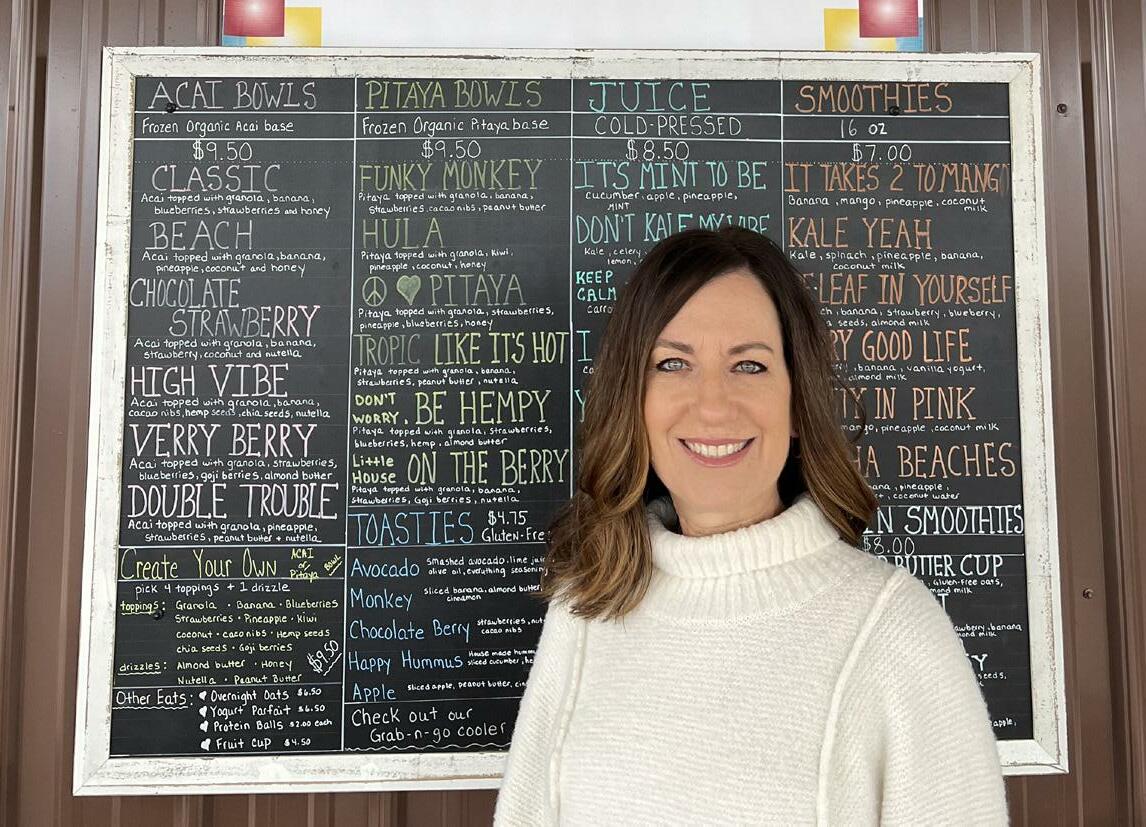 ACAI BOWLS
Frozen Organic Acai base
$9.50
CLASSIC
Acai topped with granola, banana,
blueberries, strawberries and honey
BEACH
Acai topped with granola, banana,
pineapple, coconut and honey
CHOCOLATE
STRAWBERRY
Acai topped with granola, banana,
strawberry, coconut and nutella
HIGH VIBE
Acai topped with granola, banana,
cacao nibs, hemp seeds, chia seeds, nutella
VERRY BERRY
Acai topped with granola, strawberries,
blueberries, goji berries, almond butter
DOUBLE TROUBLE
Acai topped with granola, pineapple,
strawberries, peanut butter + nutella
Create Your Own ACAI or Pitaya Bowl
pick 4 toppings + 1 drizzle
toppings: Granola · Banana · Blueberries
Strawberries · Pineapple · Kiwi
coconut · cacao nibs · Hemp seeds
chia seeds · Goji berries
drizzles: Almond butter · Honey
Nutella · Peanut Butter
$9.50
Other Eats:
Overnight Oats $6.50
Yogurt Parfait $6.50
Protein Balls $2.00 each
Fruit Cup $4.50
PITAYA BOWLS
Frozen Organic Pitaya base
$9.50
FUNKY MONKEY
Pitaya topped with granola, banana,
strawberries, cacao nibs, peanut butter
HULA
Pitaya topped with granola, kiwi,
pineapple, coconut, honey
PITAYA
Pitaya topped with granola, strawberries,
pineapple, blueberries, honey
TROPIC LIKE IT'S HOT
Pitaya topped with granola, banana,
strawberries, peanut butter, nutella
DON'T WORRY, BE HEMPY
Pitaya topped with granola, strawberries,
blueberries, hemp, almond butter
Little House ON THE BERRY
Pitaya topped with granola, banana,
strawberries, Goji berries, nutella
TOASTIES $4.75
Gluten-Fre
Avocado smashed avocado, lime jui
olive oil, everything seasonin
Monkey sliced banana, almond butter
cinnamon
Chocolate Berry strawberries, nut
cacao nibs
Happy Hummus House made humm
sliced cucumber, he
Apple sliced apple, peanut butter, cin
Check out our
Grab-n-go cooler
JUICE
COLD-PRESSED
$8.50
IT'S MINT TO BE
cucumber, apple, pineapple,
MINT
DON'T KALE MY VIBE
Kale, celery,
lemon,
KEEP
CALM
carro
SMOOTHIES
16 oz
$7.00
IT TAKES 2 TO MANGO
Banana, mango, pineapple, coconut
milk
KALE YEAH
Kale, spinach, pineapple, banana,
coconut milk
LEAF IN YOURSELF
banana, strawberry, blueberry,
seeds, almond milk
RY GOOD LIFE
banana, vanilla yogurt,
almond milk
TY IN PINK
mango, pineapple, coconut milk
HA BEACHES
ana, pineapple,
coconut water
N SMOOTHIES
$8.00
BUTTER CUP
Gluten-free oats,
milk
awberry, banana
milk
Y
seeds,
apple,